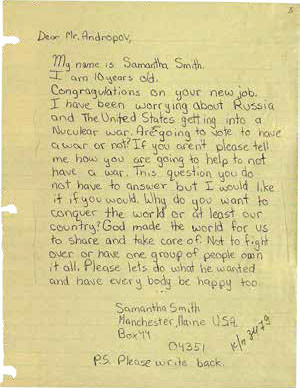 Dear Mr. Andropov,
My name is Samantha Smith.
I am 10 years old.
Congragulations on your new job.
I have been worrying about Russia
and The United States getting into a
Nuculear war. Are going to vote to have
a war or not? If you aren't please tell
me how you are going to help to not
have a war. This question you do
not have to answer but I would like
it if you would. Why do you want to
conquer the world or at least our
country? God made the world for us
to share and take care of. Not to fight
over or have one group of people own
it all. Please lets do what he wanted
and have every body be happy too.
Samantha Smith
Manchester, Maine USA
Box 44
04351
P.S. Please write back.